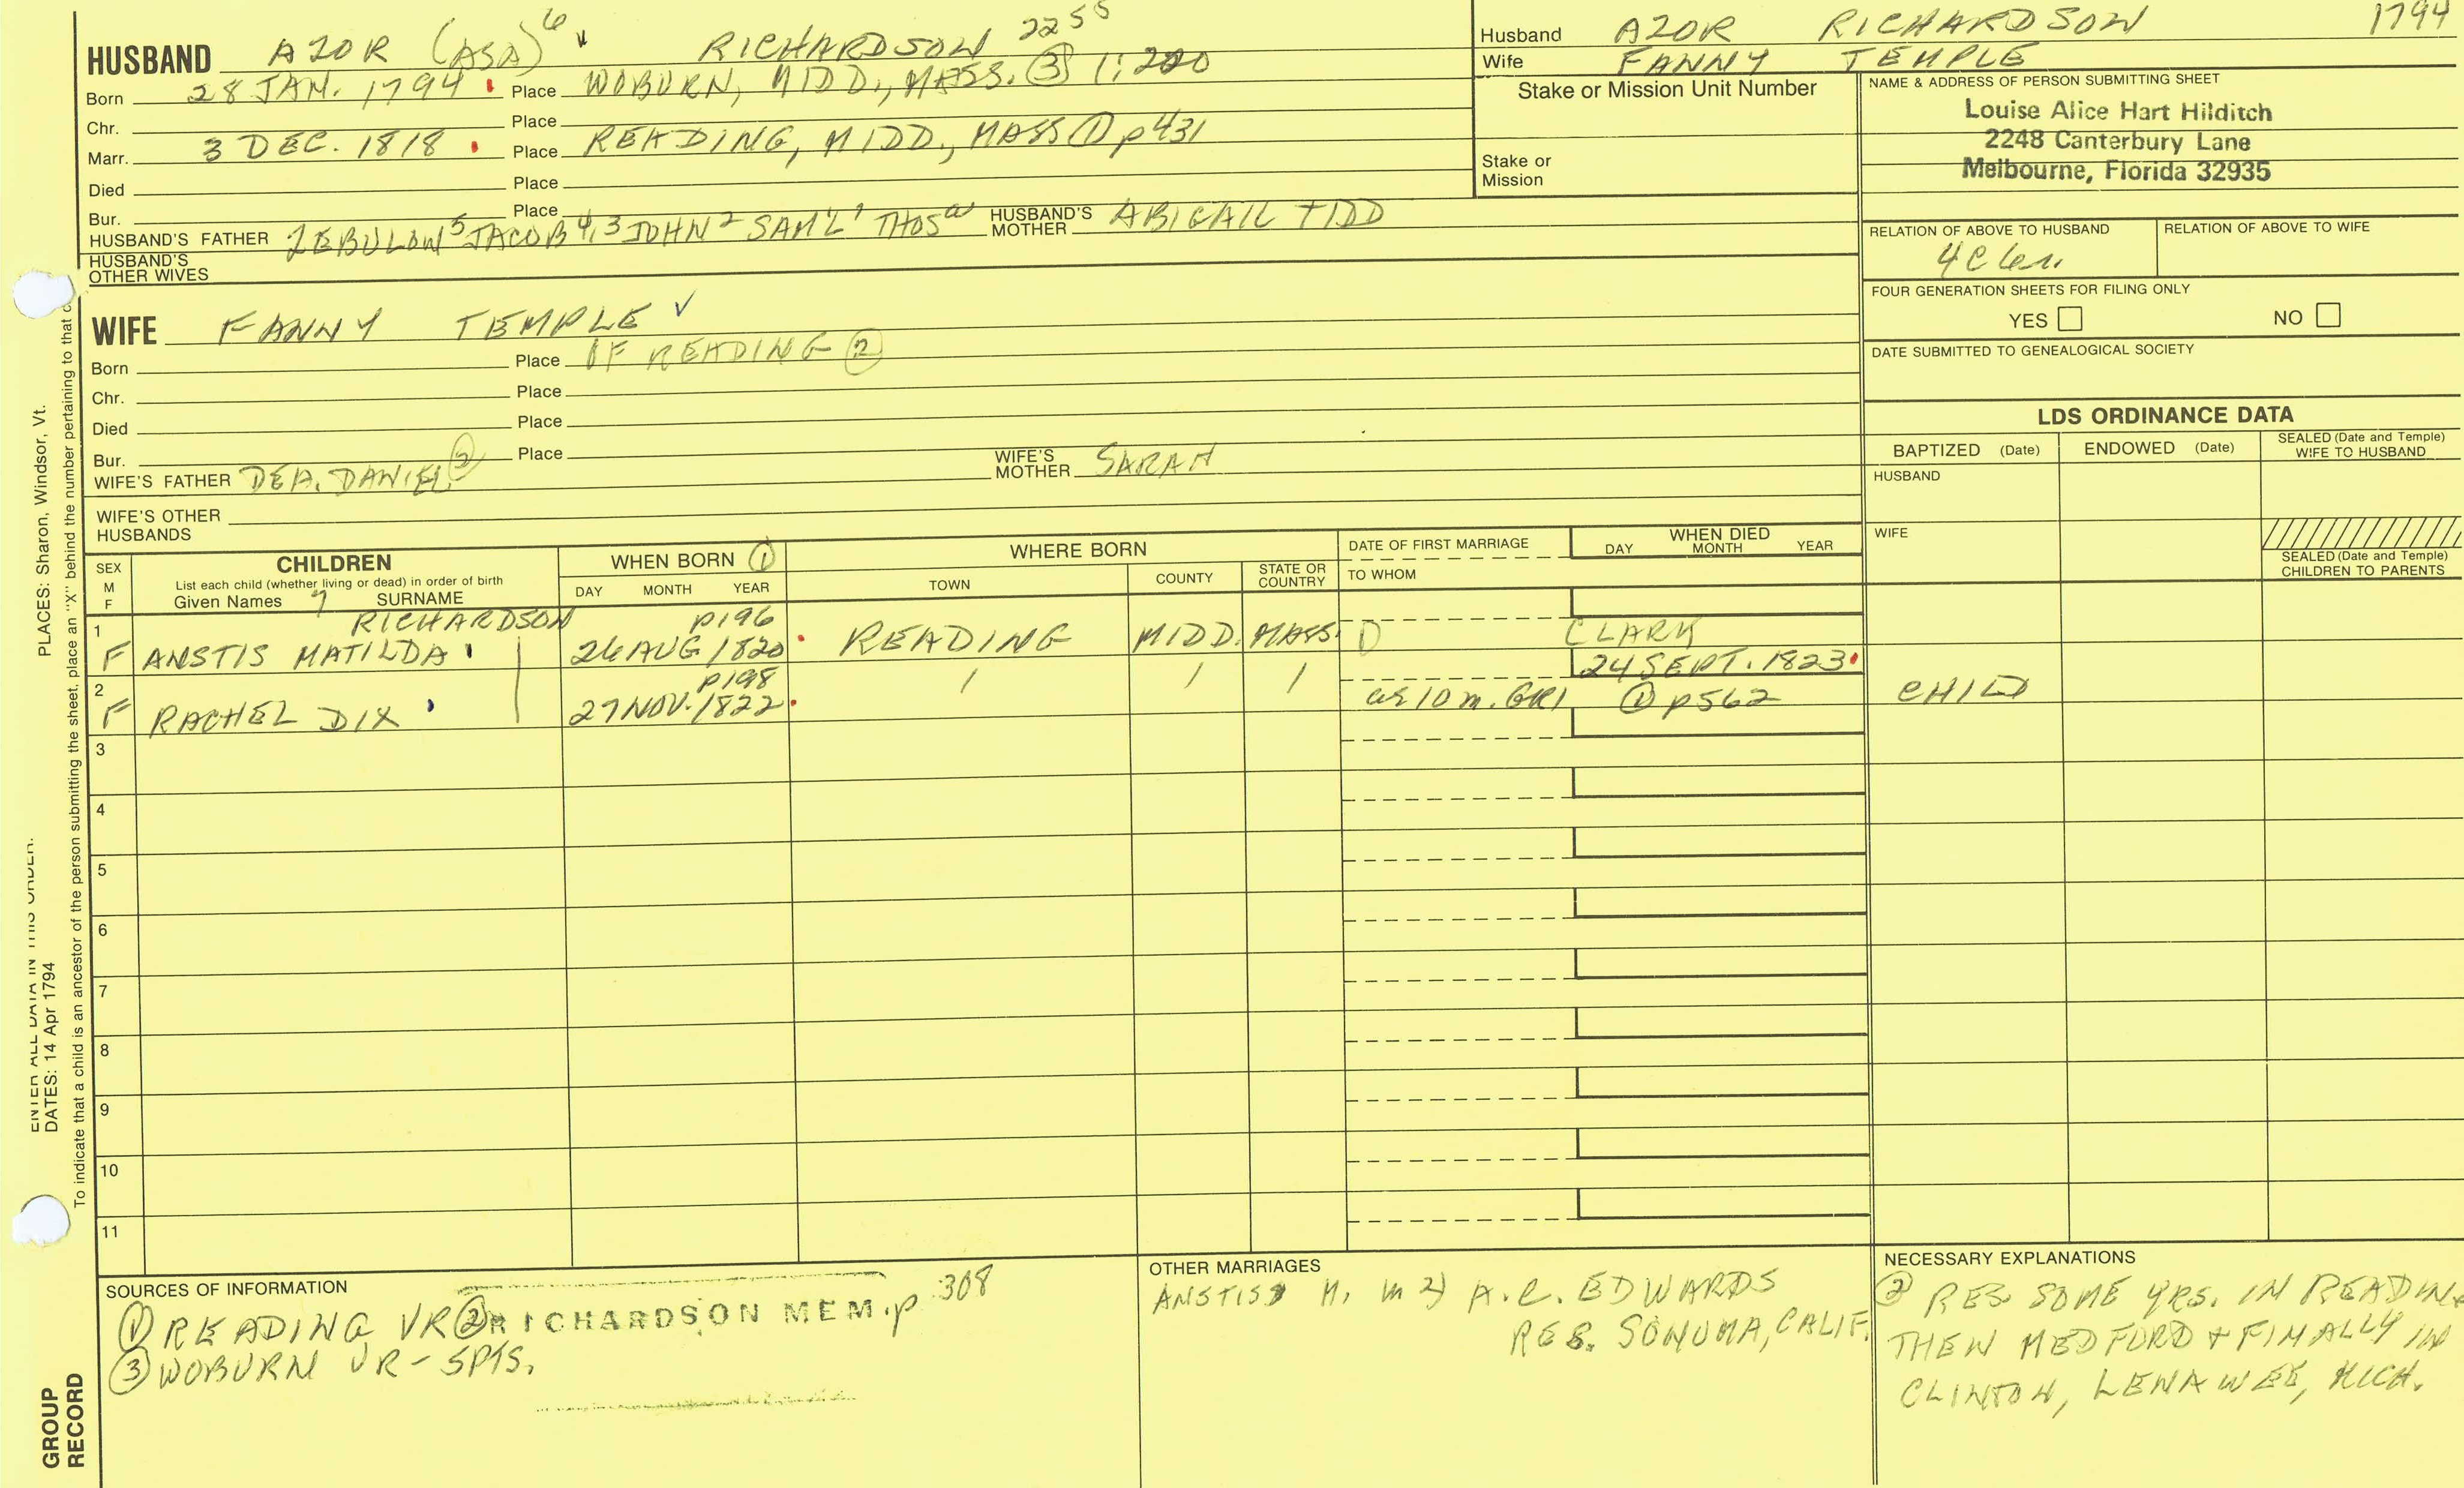 HUSBAND AZOR (ASA)6 RICHARDSON 2255
Born 28 JAN. 1794 Place WOBURN, MIDD., MASS. (3) 1:200
Chr. Place
Marr. 3 DEC. 1818 Place READING, MIDD., MASS (1) p431
Died Place
Bur. Place
HUSBAND'S FATHER ZEBULON5 JACOB4,3 JOHN2 SAM'L1 THOSa HUSBAND'S MOTHER ABIGAIL TIDD
HUSBAND'S OTHER WIVES
Husband AZOR RICHARDSON 1794
Wife FANNY TEMPLE
Stake or Mission Unit Number
Stake or Mission
NAME & ADDRESS OF PERSON SUBMITTING SHEET
Louise Alice Hart Hilditch
2248 Canterbury Lane
Melbourne, Florida 32935
RELATION OF ABOVE TO HUSBAND RELATION OF ABOVE TO WIFE
4C 6r.
FOUR GENERATION SHEETS FOR FILING ONLY
YES NO
DATE SUBMITTED TO GENEALOGICAL SOCIETY
WIFE FANNY TEMPLE ✓
Born Place OF READING (2)
Chr. Place
Died Place
Bur. Place
WIFE'S FATHER DEA. DANIEL (2) WIFE'S MOTHER SARAH
WIFE'S OTHER HUSBANDS
LDS ORDINANCE DATA
BAPTIZED (Date) ENDOWED (Date) SEALED (Date and Temple) WIFE TO HUSBAND
HUSBAND
WIFE
SEALED (Date and Temple) CHILDREN TO PARENTS
SEX M F
CHILDREN
List each child (whether living or dead) in order of birth
Given Names 7 SURNAME
WHEN BORN (1)
DAY MONTH YEAR
WHERE BORN
TOWN COUNTY STATE OR COUNTRY
DATE OF FIRST MARRIAGE
TO WHOM
WHEN DIED
DAY MONTH YEAR
1 RICHARDSON p196
F ANSTIS MATILDA 26 AUG 1820 READING MIDD. MASS. 1) CLARK
2 p198 24 SEPT. 1823
F RACHEL DIX 27 NOV. 1822 / / / ae 10 m. GR1 (1) p562 CHILD
3
4
5
6
7
8
9
10
11
SOURCES OF INFORMATION
(1) READING VR (2) RICHARDSON MEM. p 308
(3) WOBURN VR - 5PTS.
OTHER MARRIAGES
ANSTIS M. m 2) A.C. EDWARDS
RES. SONOMA, CALIF.
NECESSARY EXPLANATIONS
(2) RES SOME YRS. IN READING
THEN MEDFORD + FINALLY IN
CLINTON, LENAWEE, MICH.
PLACES: Sharon, Windsor, Vt.
ENTER ALL DATA IN THIS ORDER.
DATES: 14 Apr 1794
To indicate that a child is an ancestor of the person submitting the sheet, place an "X" behind the number pertaining to that
GROUP RECORD